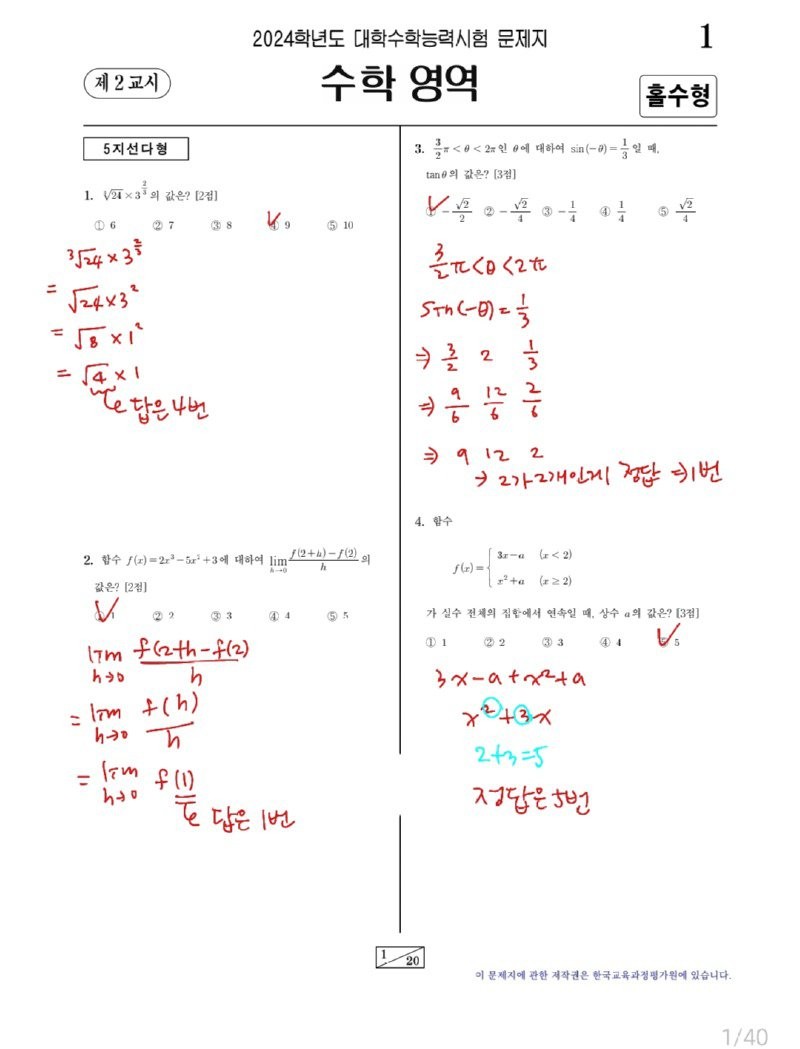 2024학년도 대학수학능력시험 문제지
1
제 2 교시
수학 영역
홀수형
5지선다형
1. ∛24 × 3^(2/3) 의 값은? [2점]
① 6 ② 7 ③ 8 ④ 9 ⑤ 10
³√24 × 3^(2/3)
= √24 × 3²
= √8 × 1²
= √4 × 1
답은 4번
2. 함수 f(x)=2x³−5x²+3에 대하여 lim h→0 (f(2+h)−f(2))/h 의
값은? [2점]
① 1 ② 2 ③ 3 ④ 4 ⑤ 5
lim h→0 f(2+h-f(2)/h
= lim h→0 f(h)/h
= lim h→0 f(1)
답은 1번
3. 3/2 π < θ < 2π인 θ에 대하여 sin(−θ)=1/3 일 때,
tanθ의 값은? [3점]
① −√2/2 ② −√2/4 ③ −1/4 ④ 1/4 ⑤ √2/4
3/2 π < θ < 2π
sin(-θ) = 1/3
⇒ 3/2 2 1/3
⇒ 9/6 12/6 2/6
⇒ 9 12 2
→ 2가 2개인게 정답 ⇒ 1번
4. 함수
f(x)= { 3x−a (x<2)
x²+a (x≥2)
가 실수 전체의 집합에서 연속일 때, 상수 a의 값은? [3점]
① 1 ② 2 ③ 3 ④ 4 ⑤ 5
3x-a+x²+a
x²+3x
2+3=5
정답은 5번
1
20
이 문제지에 관한 저작권은 한국교육과정평가원에 있습니다.
1/40